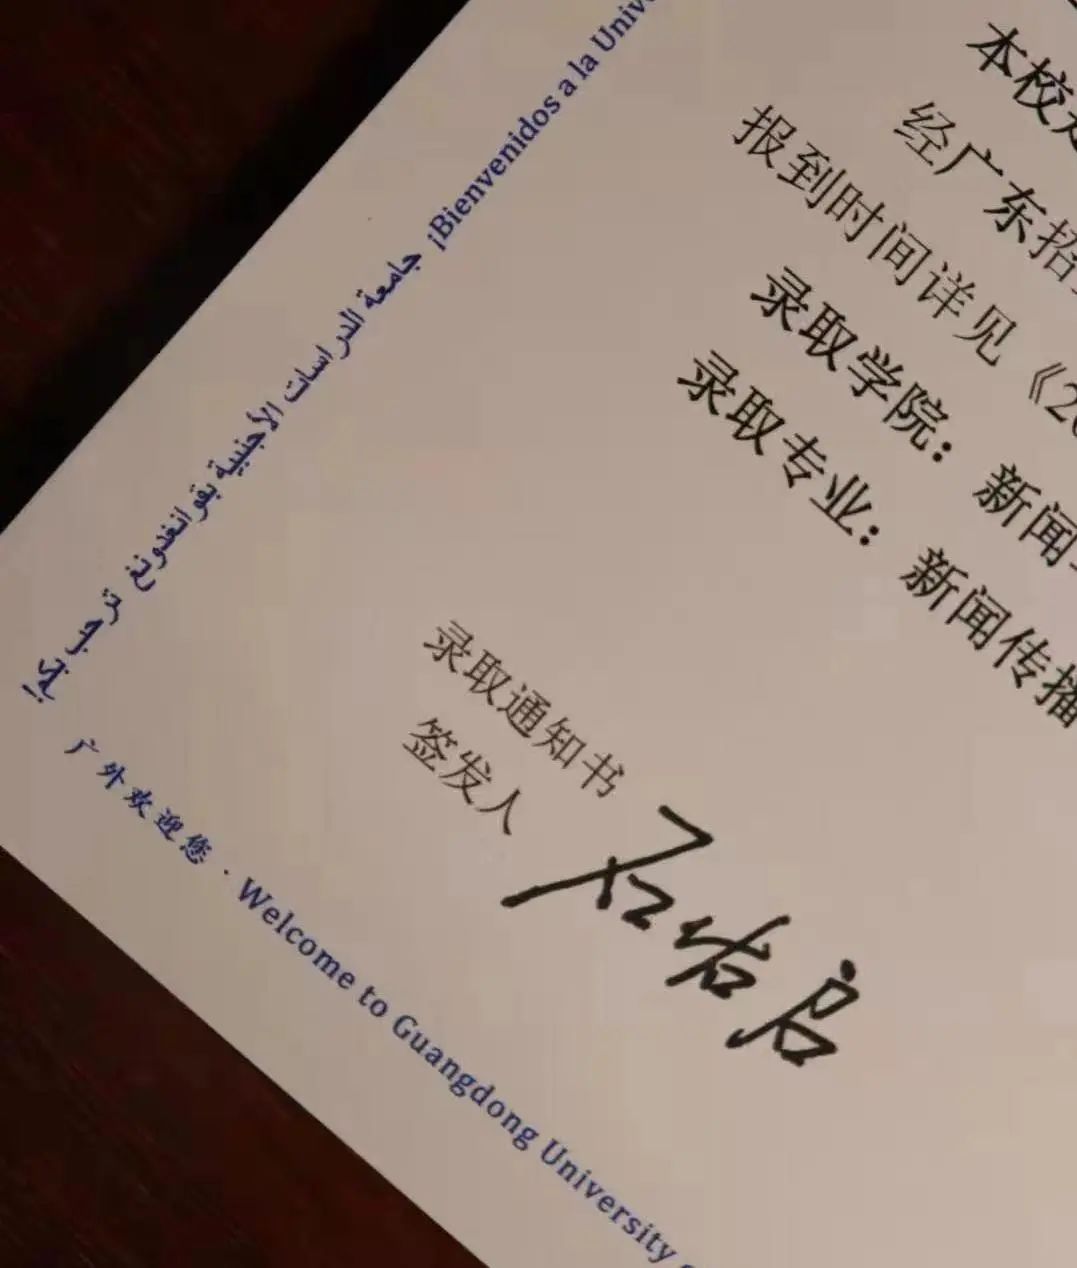 本校
经广东招
报到时间详见《20
录取学院：新闻
录取专业：新闻传播
录取通知书
签发人
石佑启
¡Bienvenidos a la Univ
جامعة الدراسات الأجنبية بقوانغدونغ ترحب بكم
广外欢迎您 · Welcome to Guangdong University